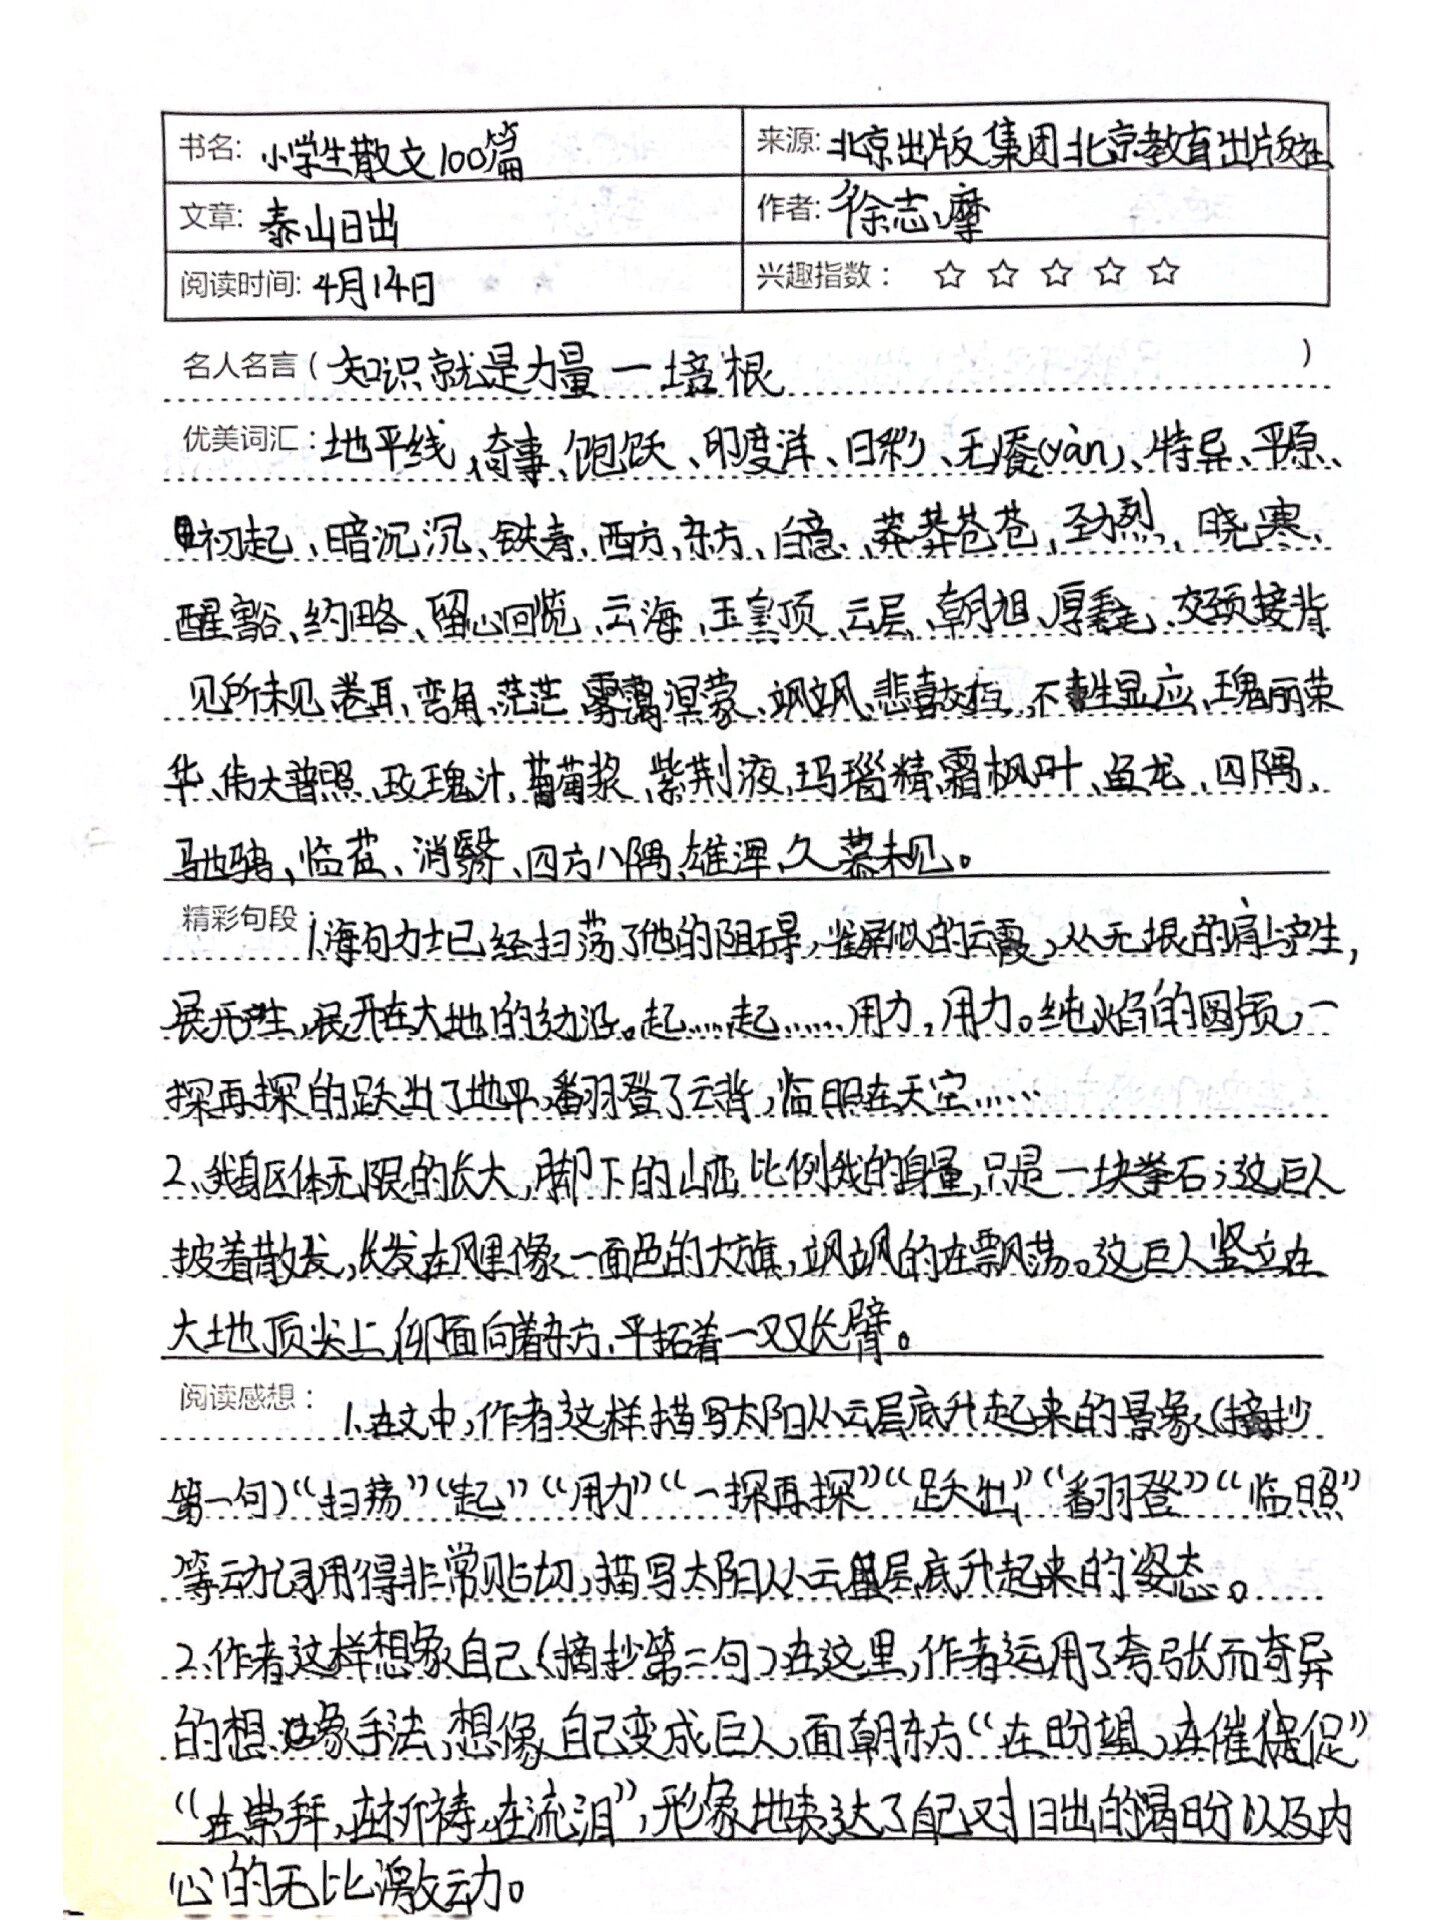 书名: 小学生散文100篇 来源: 北京出版集团北京教育出版社
文章: 泰山日出 作者: 徐志摩
阅读时间: 4月14日 兴趣指数: ☆ ☆ ☆ ☆ ☆
名人名言(知识就是力量 一培根 )
优美词汇:地平线、奇事、饱饫、印度洋、日彩、无餍(yàn)、特异、平原、
初起、暗沉沉、铁青、西方、东方、白意、莽莽苍苍、劲烈、晓寒、
醒豁、约略、留心回览、云海、玉皇顶、云层、朝旭、厚毳、交颈接背
见所未见、卷耳、弯角、茫茫、雾霭溟蒙、飒飒、悲喜交互、不生显应、瑰丽荣
华、伟大普照、玫瑰汁、葡萄浆、紫荆液、玛瑙精、霜枫叶、鱼龙、四隅、
驰骋、临莅、消翳、四方八隅、雄浑、久慕未见。
精彩句段 1.海句力士已经扫荡了他的阻碍,雀屏似的云霞,从无垠的肩上产生,
展开产生,展开在大地的边沿。起……起……用力,用力。纯焰的圆颅,一
探再探的跃出了地平,翻登了云背,临照在天空……
2、我身区体无限的长大,脚下的山峦比例我的身量,只是一块拳石;这巨人
披着散发,长发在风里像一面色的大旗,飒飒的在飘荡。这巨人竖立在
大地顶尖上,仰面向着东方,平拓着一双长臂。
阅读感想: 1.在文中,作者这样描写太阳从云层底升起来的景象(摘抄
第一句)“扫荡”“起”“用力”“一探再探”“跃出”“翻登”“临照”
等动词用得非常贴切,描写太阳从云层底升起来的姿态。
2.作者这样想象自己(摘抄第二句)在这里,作者运用了夸张而奇异
的想象手法,想像自己变成巨人,面朝东方“在盼望,在催促”
“在崇拜,在祈祷,在流泪”,形象地表达了自己对日出的渴盼以及内
心的无比激动。